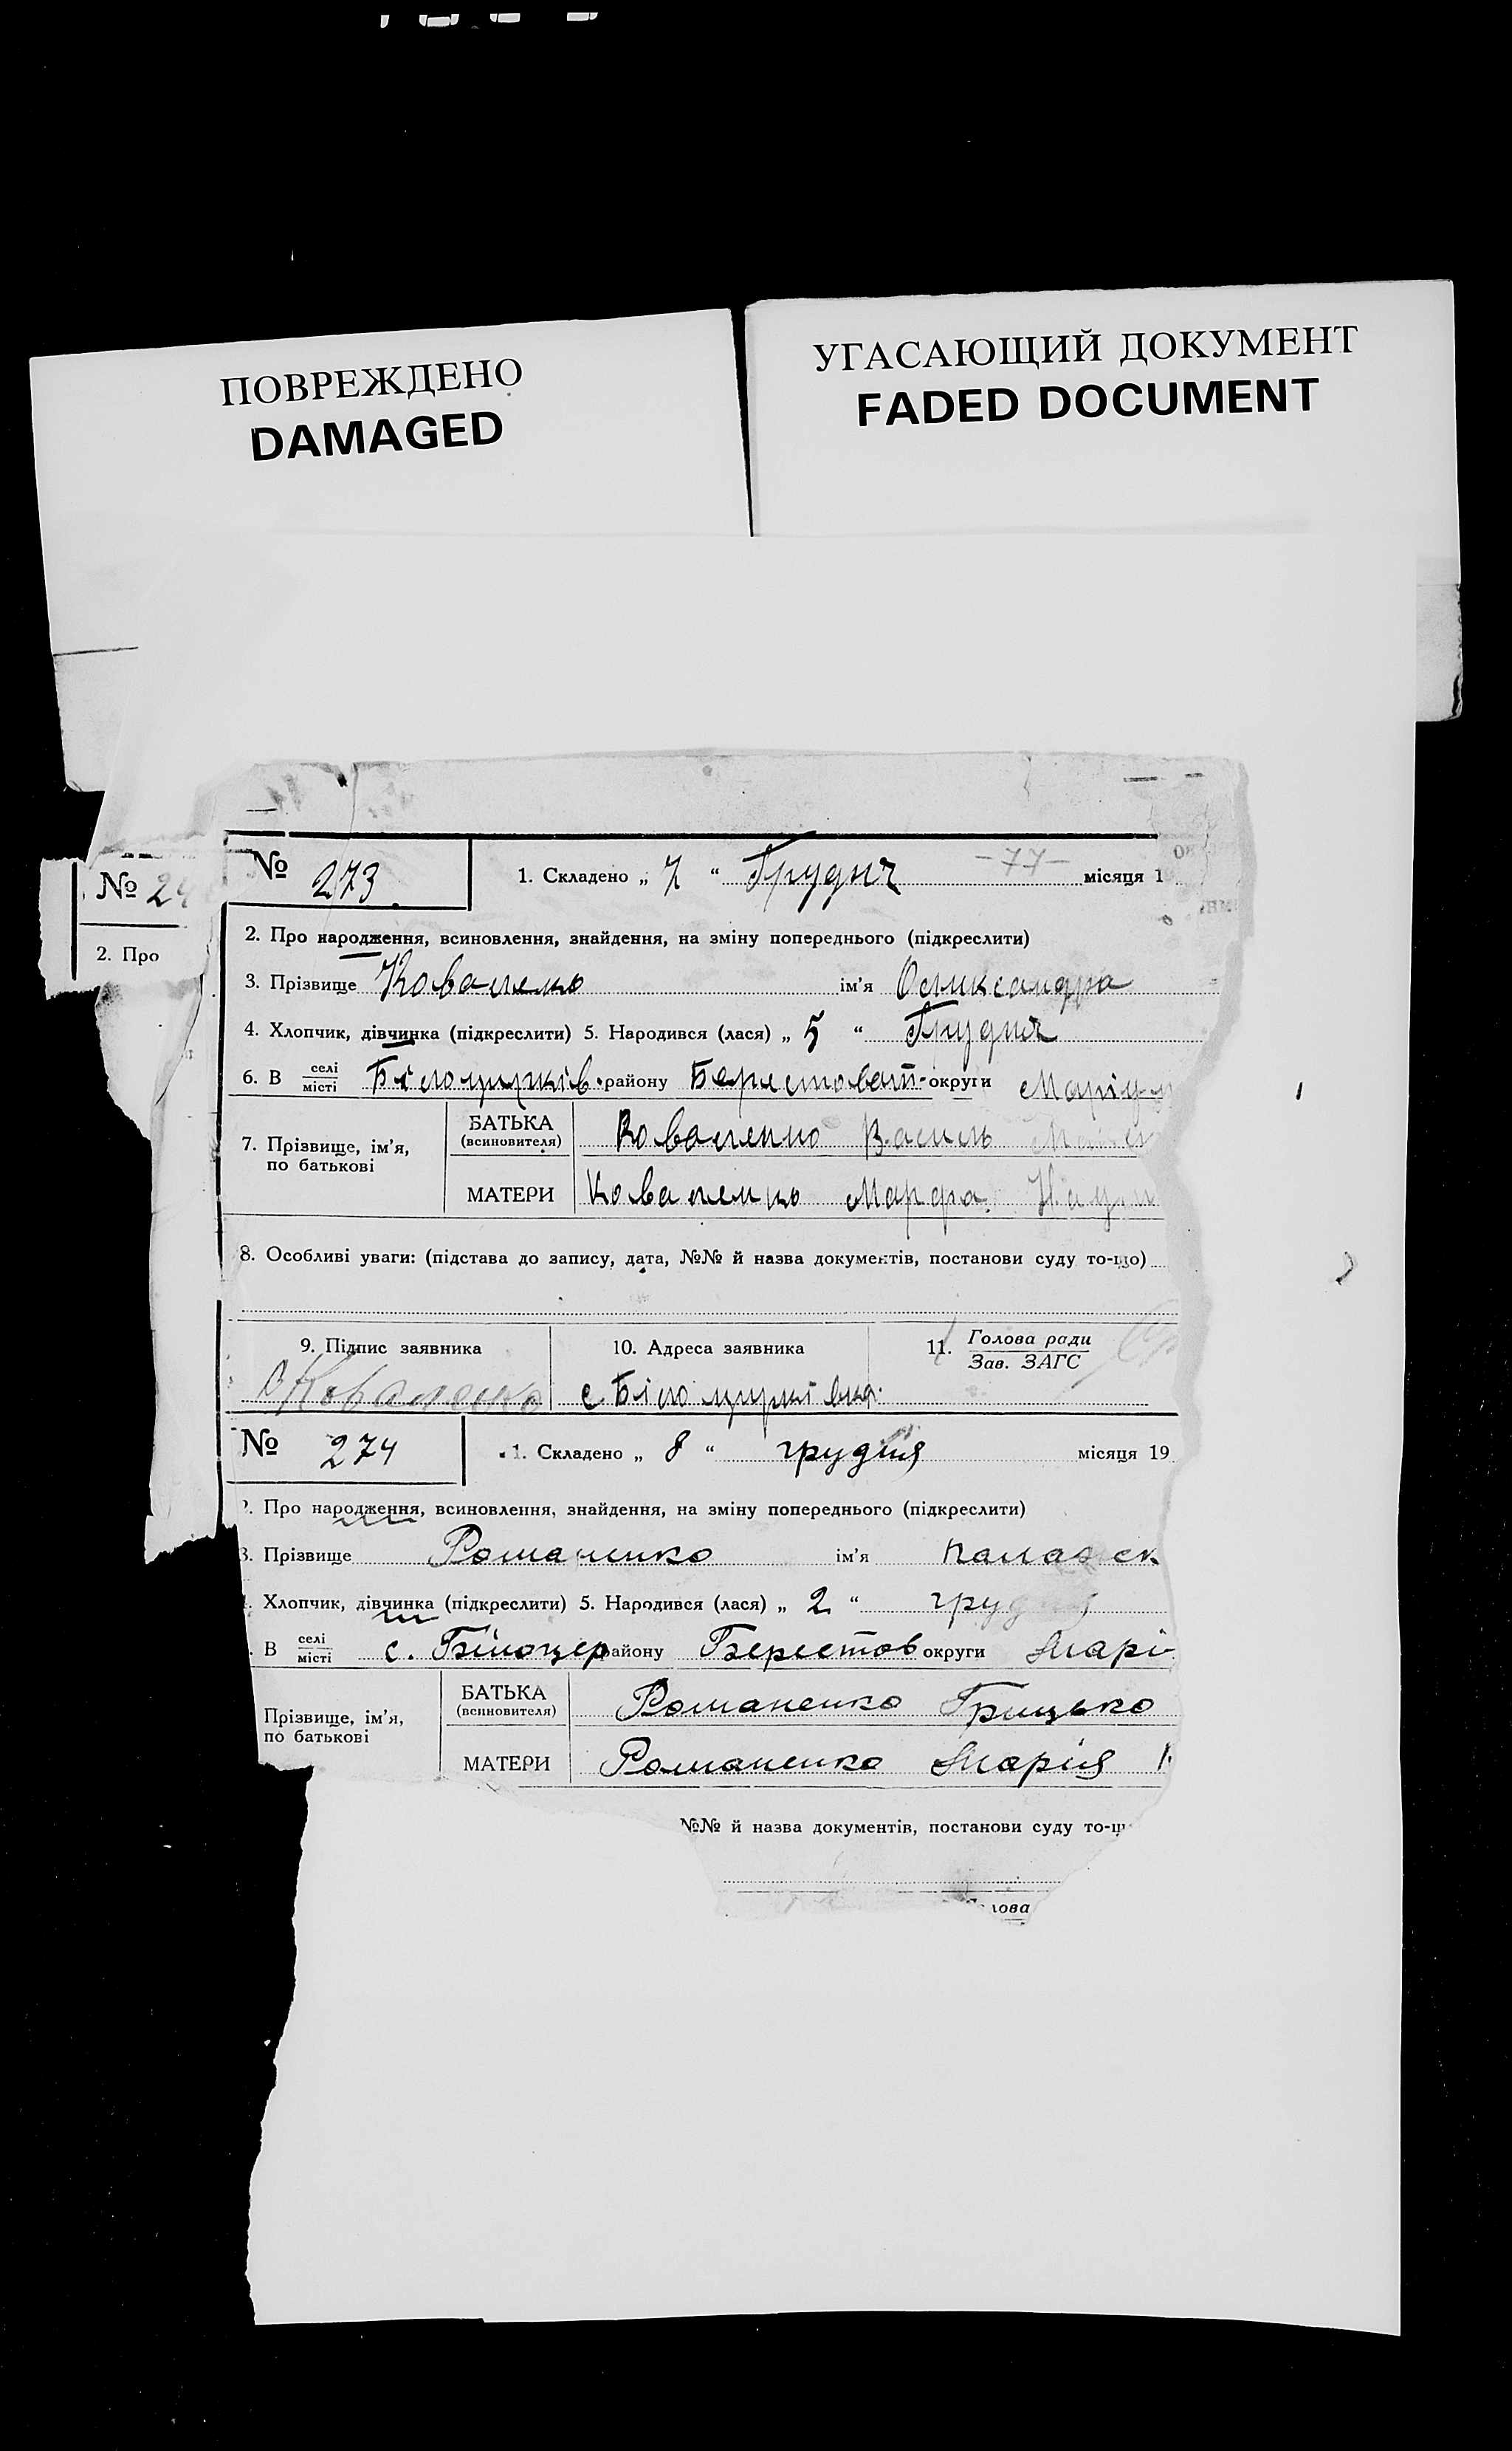 ПОВРЕЖДЕНО
DAMAGED
УГАСАЮЩИЙ ДОКУМЕНТ
FADED DOCUMENT
№ 24
2. Про
№ 273.
1. Складено „ 7 “ Грудня -77- місяця 1
2. Про народження, всиновлення, знайдення, на зміну попереднього (підкреслити)
3. Прізвище Коваленко ім’я Олександра
4. Хлопчик, дівчинка (підкреслити) 5. Народився (лася) „ 5 “ Грудня
6. В селі/місті Білоцирків. району Берестоват- округи Маріу
7. Прізвище, ім’я, по батькові
БАТЬКА (всиновителя) Коваленко Василь
МАТЕРИ Коваленко Марфа
8. Особливі уваги: (підстава до запису, дата, №№ й назва документів, постанови суду то-що)
9. Підпис заявника 10. Адреса заявника 11. Голова ради / Зав. ЗАГС
В Коваленко с Білоцирківка
№ 274
1. Складено „ 8 “ грудня місяця 19
2. Про народження, всиновлення, знайдення, на зміну попереднього (підкреслити)
3. Прізвище Романенко ім’я
. Хлопчик, дівчинка (підкреслити) 5. Народився (лася) „ 2 “ груд
. В селі/місті с. Білоцер району Берестов округи Марі
Прізвище, ім’я, по батькові
БАТЬКА (всиновителя) Романенко Грицько
МАТЕРИ Романенко Марія
№№ й назва документів, постанови суду то-щ
лова